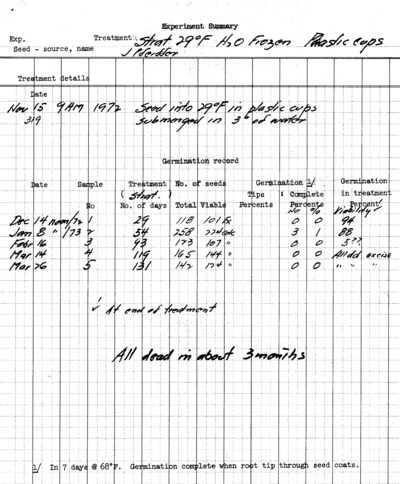 Experiment Summary
Exp. Treatment: Strat 29°F H2O Frozen Plastic cups
Seed - source, name J Pfeidder
Treatment details
Date
Nov 15 9 AM 1972 Seed into 29°F in plastic cups
319 Submerged in 3" of water
Germination record
Date Sample No Treatment (Strat.) No. of days No. of seeds Total Viable Germination 1/ Tips Percents : Complete Percents No % Germination in treatment Percent Viability
Dec 14 noon/72 1 29 118 101 0 0 94
Jan 8 " /73 2 54 258 224 3 1 88
Febr 16 3 93 173 107 " 0 0 5??
Mar 14 4 119 165 144 " 0 0 All dd excise
Mar 26 5 131 142 124 " 0 0 " " "
At end of treatment
All dead in about 3 months
1/ In 7 days @ 68°F. Germination complete when root tip through seed coats.